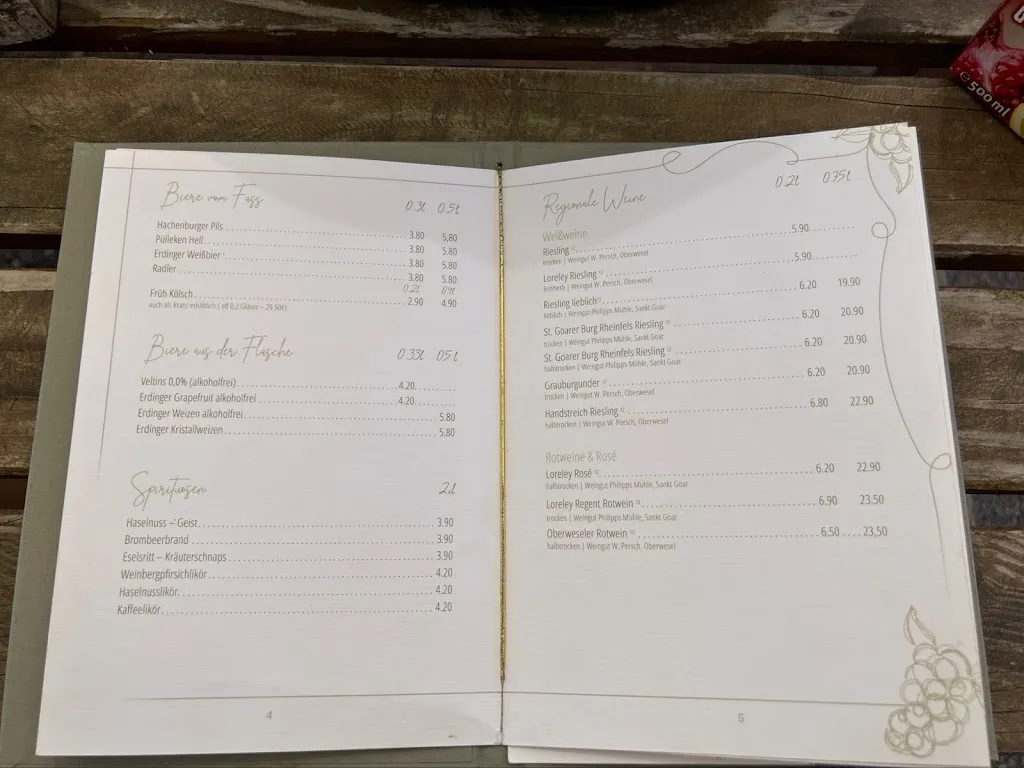 Biere vom Fass 0.3l 0.5l
Hachenburger Pils 3.80 5,80
Pülleken Hell 3.80 5.80
Erdinger Weißbier 3.80 5.80
Radler 3.80 5.80
0.2l 0.4l
Früh Kölsch 2.90 4.90
auch als Kranz erhältlich ( elf 0,2 Gläser – 29.50€)
Biere aus der Flasche 0.33l 0.5l
Veltins 0,0% (alkoholfrei) 4.20
Erdinger Grapefruit alkoholfrei 4.20
Erdinger Weizen alkoholfrei 5.80
Erdinger Kristallweizen 5.80
Spirituosen 2cl
Haselnuss – Geist 3.90
Brombeerbrand 3.90
Eselsritt – Kräuterschnaps 3.90
Weinbergpfirsichlikör 4.20
Haselnusslikör 4.20
Kaffeelikör 4.20
4
Regionale Weine 0.2l 0.75l
Weißweine
Riesling 12 5.90
trocken | Weingut W. Persch, Oberwesel
Loreley Riesling 12 5.90
feinherb | Weingut W. Persch, Oberwesel
Riesling lieblich 12 6.20 19.90
lieblich | Weingut Philipps Mühle, Sankt Goar
St. Goarer Burg Rheinfels Riesling 12 6.20 20.90
trocken | Weingut Philipps Mühle, Sankt Goar
St. Goarer Burg Rheinfels Riesling 12 6.20 20.90
halbtrocken | Weingut Philipps Mühle, Sankt Goar
Grauburgunder 12 6.20 20.90
trocken | Weingut W. Persch, Oberwesel
Handstreich Riesling 12 6.80 22.90
halbtrocken | Weingut W. Persch, Oberwesel
Rotweine & Rosé
Loreley Rosé 12 6.20 22.90
halbtrocken | Weingut Philipps Mühle, Sankt Goar
Loreley Regent Rotwein 12 6.90 23,50
trocken | Weingut Philipps Mühle, Sankt Goar
Oberweseler Rotwein 12 6.50 23,50
halbtrocken | Weingut W. Persch, Oberwesel
5
e 500 ml